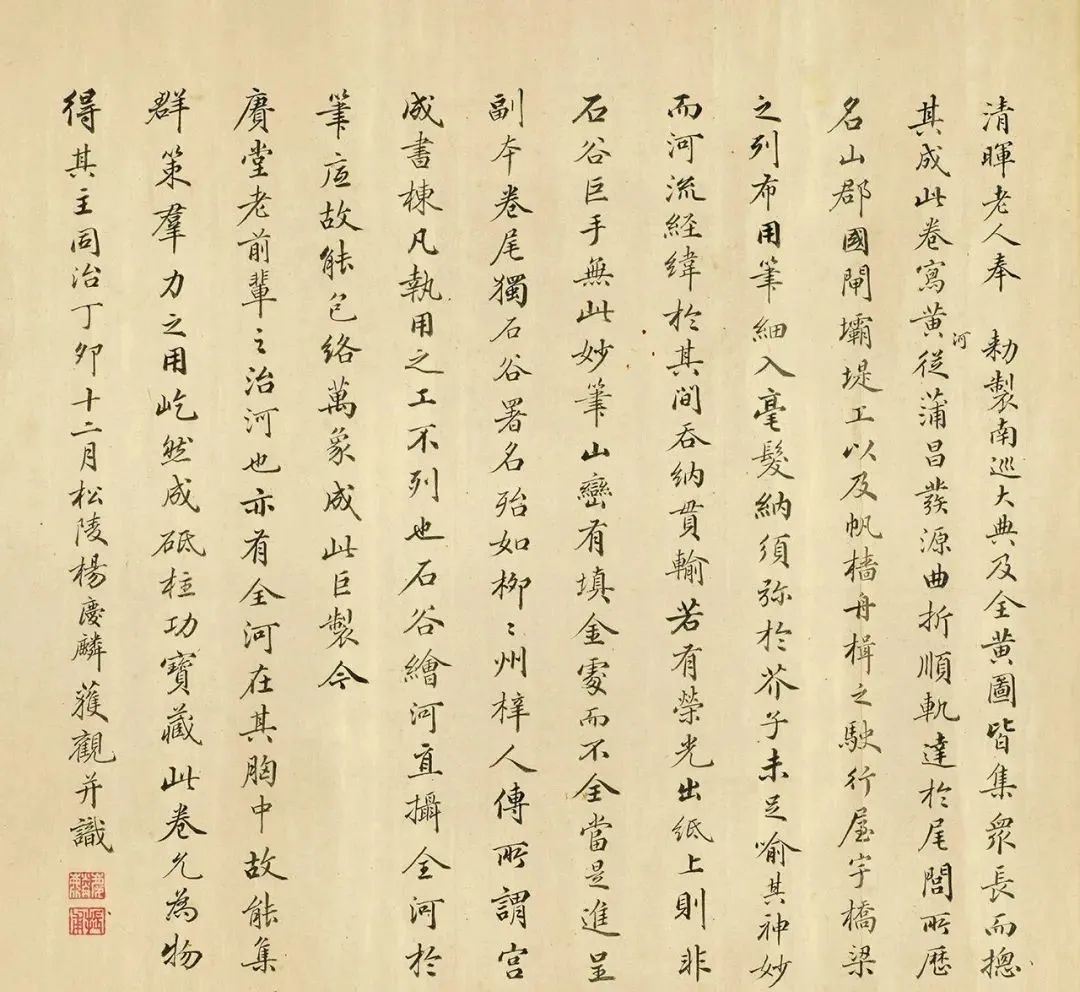 清暉老人奉　勑製南巡大典及全黄圖皆集衆長而摠
其成此卷寫黄河從蒲昌發源曲折順軌達於尾閭所歷
名山郡國閘壩堤工以及帆檣舟楫之駛行屋宇橋梁
之列布用筆細入毫髮納須弥於芥子未足喻其神妙
而河流經緯於其間吞納貫輸若有榮光出紙上則非
石谷巨手無此妙筆山巒有填金處而不全當是進呈
副夲卷尾獨石谷署名殆如栁〻州梓人傳所謂宫
成書棟凡執用之工不列也石谷繪河直攝全河於
筆底故能包絡萬象成此巨製今
賡堂老前輩之治河也亦有全河在其胸中故能集
群策羣力之用屹然成砥柱功寳藏此卷允為物
得其主同治丁卯十二月松陵楊慶麟獲觀并識